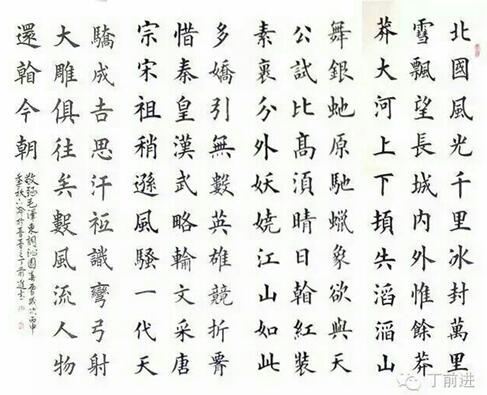 北國風光千里冰封萬里
雪飄望長城內外惟餘莽
莽大河上下頓失滔滔山
舞銀虵原馳蠟象欲與天
公試比髙湏晴日看紅裝
素裹分外妖嬈江山如此
多嬌引無數英雄競折腰
惜秦皇漢武略輸文采唐
宗宋祖稍遜風騷一代天
驕成吉思汗祗識彎弓射
大雕俱往矣數風流人物
還看今朝
敬錄毛澤東詞沁園春雪歲次丙申
季秋丁前進書
丁前进